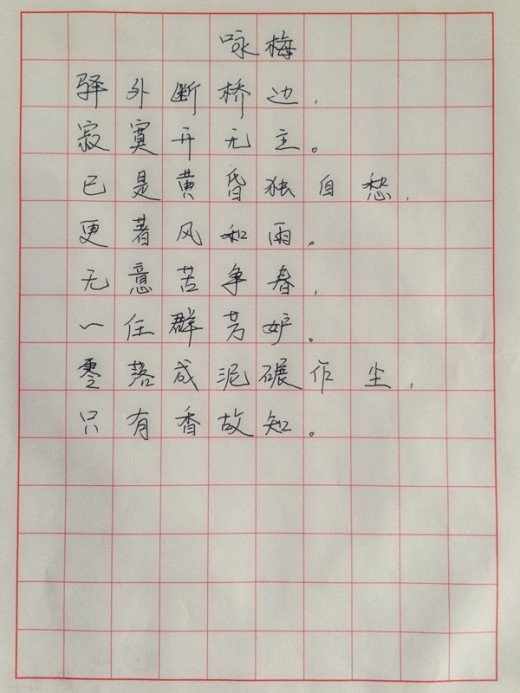 咏梅
驿外断桥边，
寂寞开无主。
已是黄昏独自愁，
更著风和雨。
无意苦争春，
一任群芳妒。
零落成泥碾作尘，
只有香故知。